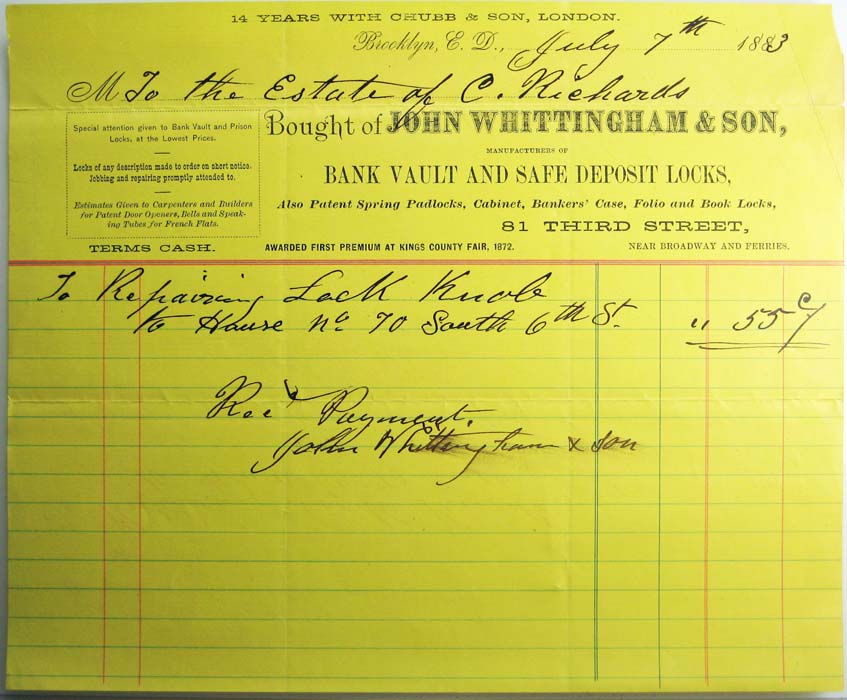 14 YEARS WITH CHUBB & SON, LONDON.
Brooklyn, E. D., July 7th 1883
M To the Estate of C. Richards
Bought of JOHN WHITTINGHAM & SON,
MANUFACTURERS OF
BANK VAULT AND SAFE DEPOSIT LOCKS,
Also Patent Spring Padlocks, Cabinet, Bankers' Case, Folio and Book Locks,
81 THIRD STREET,
NEAR BROADWAY AND FERRIES.
AWARDED FIRST PREMIUM AT KINGS COUNTY FAIR, 1872.
Special attention given to Bank Vault and Prison
Locks, at the Lowest Prices.
Locks of any description made to order on short notice.
Jobbing and repairing promptly attended to.
Estimates Given to Carpenters and Builders
for Patent Door Openers, Bells and Speak-
ing Tubes for French Flats.
TERMS CASH.
To Repairing Lock Knob
to House No 70 South 6th St. " 55 c/
Recd Payment.
John Whittingham & Son